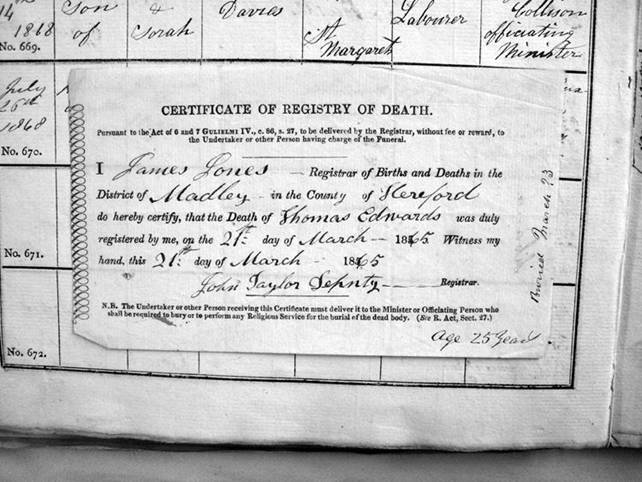 14th Son & Davies St. Labourer Collison
1868 of Sarah Margarets officiating
No. 669. Minister
July
26th
1868
No. 670.
No. 671.
No. 672.
CERTIFICATE OF REGISTRY OF DEATH.
Pursuant to the Act of 6 and 7 GULIELMI IV., c. 86, s. 27, to be delivered by the Registrar, without fee or reward, to
the Undertaker or other Person having charge of the Funeral.
I James Jones Registrar of Births and Deaths in the
District of Madley in the County of Hereford
do hereby certify, that the Death of Thomas Edwards was duly
registered by me, on the 21st day of March 1865. Witness my
hand, this 21st day of March 1865
John Taylor Depnty Registrar.
N.B. The Undertaker or other Person receiving this Certificate must deliver it to the Minister or Officiating Person who
shall be required to bury or to perform any Religious Service for the burial of the dead body. (See R. Act, Sect. 27.)
Age 25 Years
Buried March 23